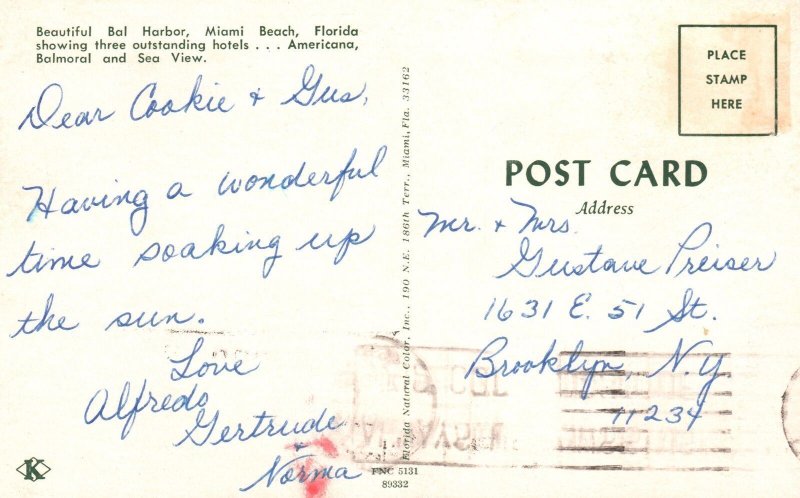 Beautiful Bal Harbor, Miami Beach, Florida
showing three outstanding hotels . . . Americana,
Balmoral and Sea View.
Dear Cookie + Gus,
Having a wonderful
time soaking up
the sun.
Love
Alfredo
Gertrude
+
Norma
K
Florida Natural Color, Inc., 190 N.E. 186th Terr., Miami, Fla. 33162
FNC 5131
89332
PLACE
STAMP
HERE
POST CARD
Address
Mr. + Mrs.
Gustave Preiser
1631 E. 51 St.
Brooklyn, N.Y
11234